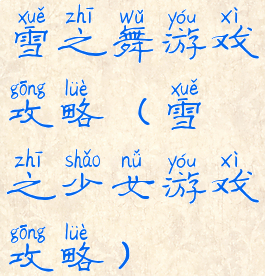 xuě zhī wǔ yóu xì
雪之舞游戏
gōng lüè xuě
攻略（雪
zhī shǎo nǚ yóu xì
之少女游戏
gōng lüè
攻略）